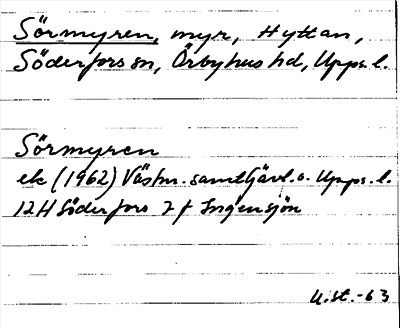 Sörmyren, myr, Hyttan,
Söderfors sn, Örbyhus hd, Upps. l.
Sörmyren
ek (1962) Västm. samt Gävl. o. Upps. l.
12H Söderfors 7 f Ingensjön
U.st. -63